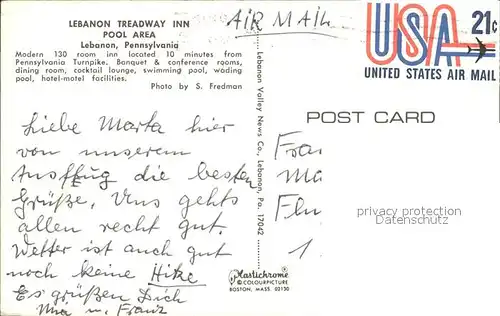 LEBANON TREADWAY INN
POOL AREA
Lebanon, Pennsylvania
Modern 130 room inn located 10 minutes from
Pennsylvania Turnpike. Banquet & conference rooms,
dining room, cocktail lounge, swimming pool, wading
pool, hotel-motel facilities.
Photo by S. Fredman
AIR MAIL
USA 21c
UNITED STATES AIR MAIL
POST CARD
Liebe Marta hier
von unserem
Ausflug die besten
Grüße, Uns gehts
allen recht gut.
Wetter ist auch gut
noch keine Hitze
Es grüßen Dich
u. Franz
Lebanon Valley News Co., Lebanon, Pa. 17042
Plastichrome ®
© COLOURPICTURE
BOSTON, MASS. 02130
Frau
Ma
Flu
1
privacy protection
Datenschutz